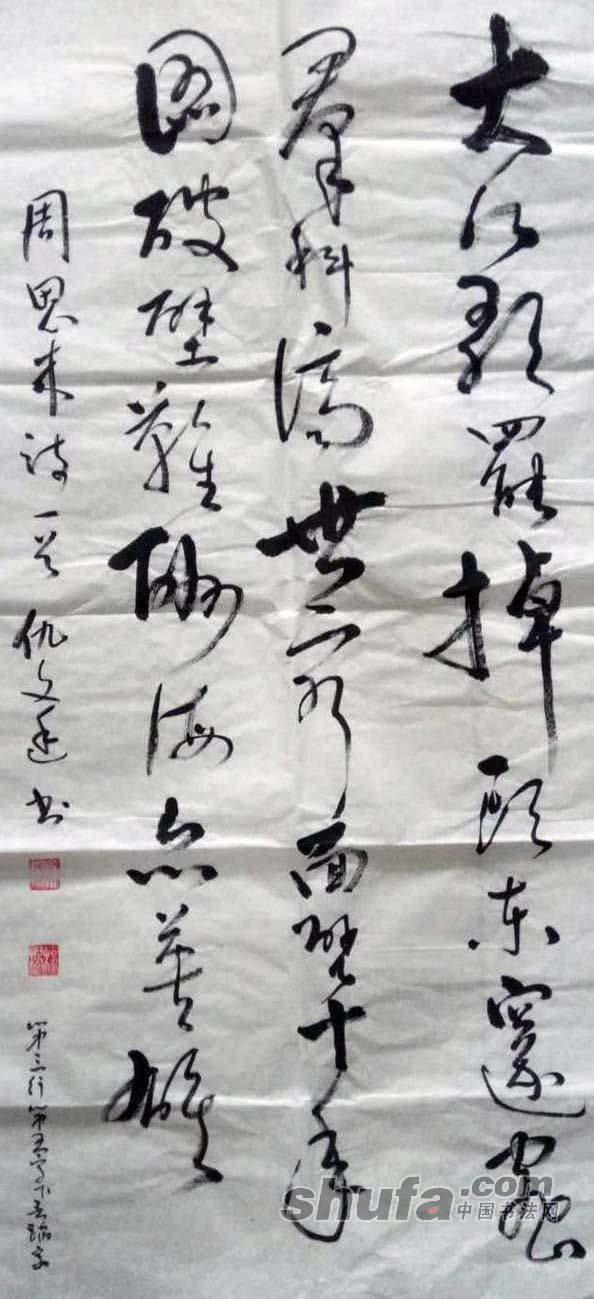 大江歌罷掉頭東邃密
羣科濟世窮面壁十年
圖破壁難酬海亦英雄
周恩来诗一首 仇文书
第三行第五字下丢蹈字
shufa.com
中国书法网